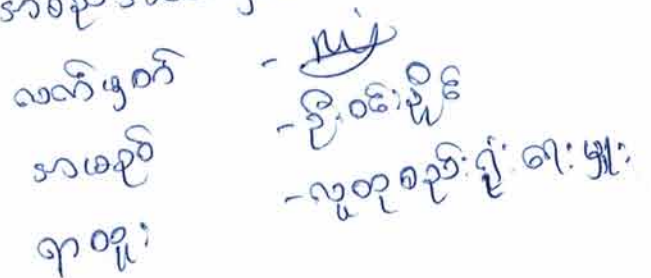 လက်မှတ် -
အမည် - ဦးဝင်းနိုင်
ရာထူး - လူထုစည်းရုံးရေးမှူး